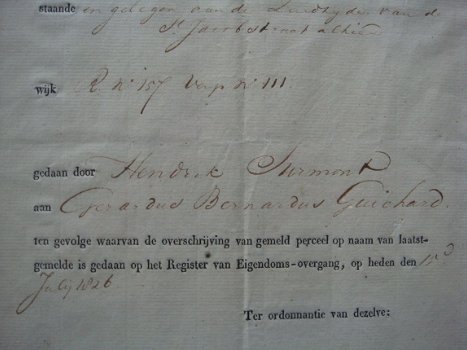 staande en gelegen aan de Zuidzijde van de
St Jacobstraat alhier
wijk R. No 157 Verp No 111
gedaan door Hendrik Surmont
aan Gerardus Bernardus Guichard.
ten gevolge waarvan de overschrijving van gemeld perceel op naam van laatst-
gemelde is gedaan op het Register van Eigendoms-overgang, op heden den
July 1826
Ter ordonnantie van dezelve: